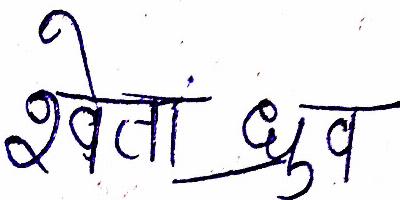 श्वेतां ध्रुव